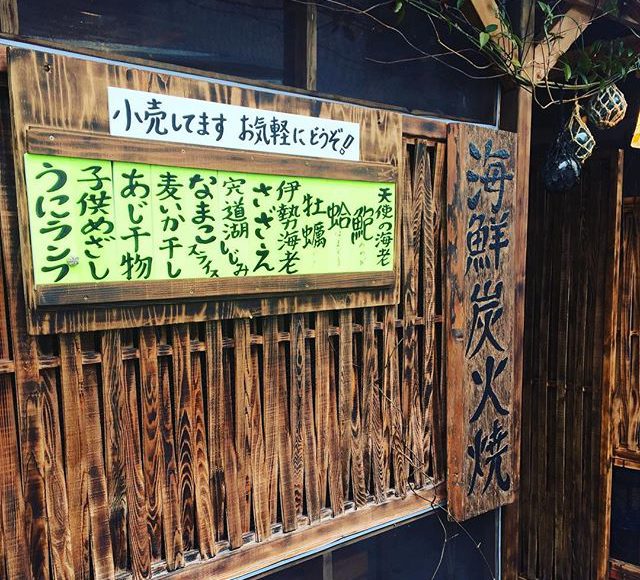 小売してます お気軽にどうぞ!!
天使の海老
鮑
蛤
牡蠣
伊勢海老
さざえ
宍道湖しじみ
なまこスライス
麦いか干し
あじ干物
子供めざし
うにランプ
海鮮炭火焼